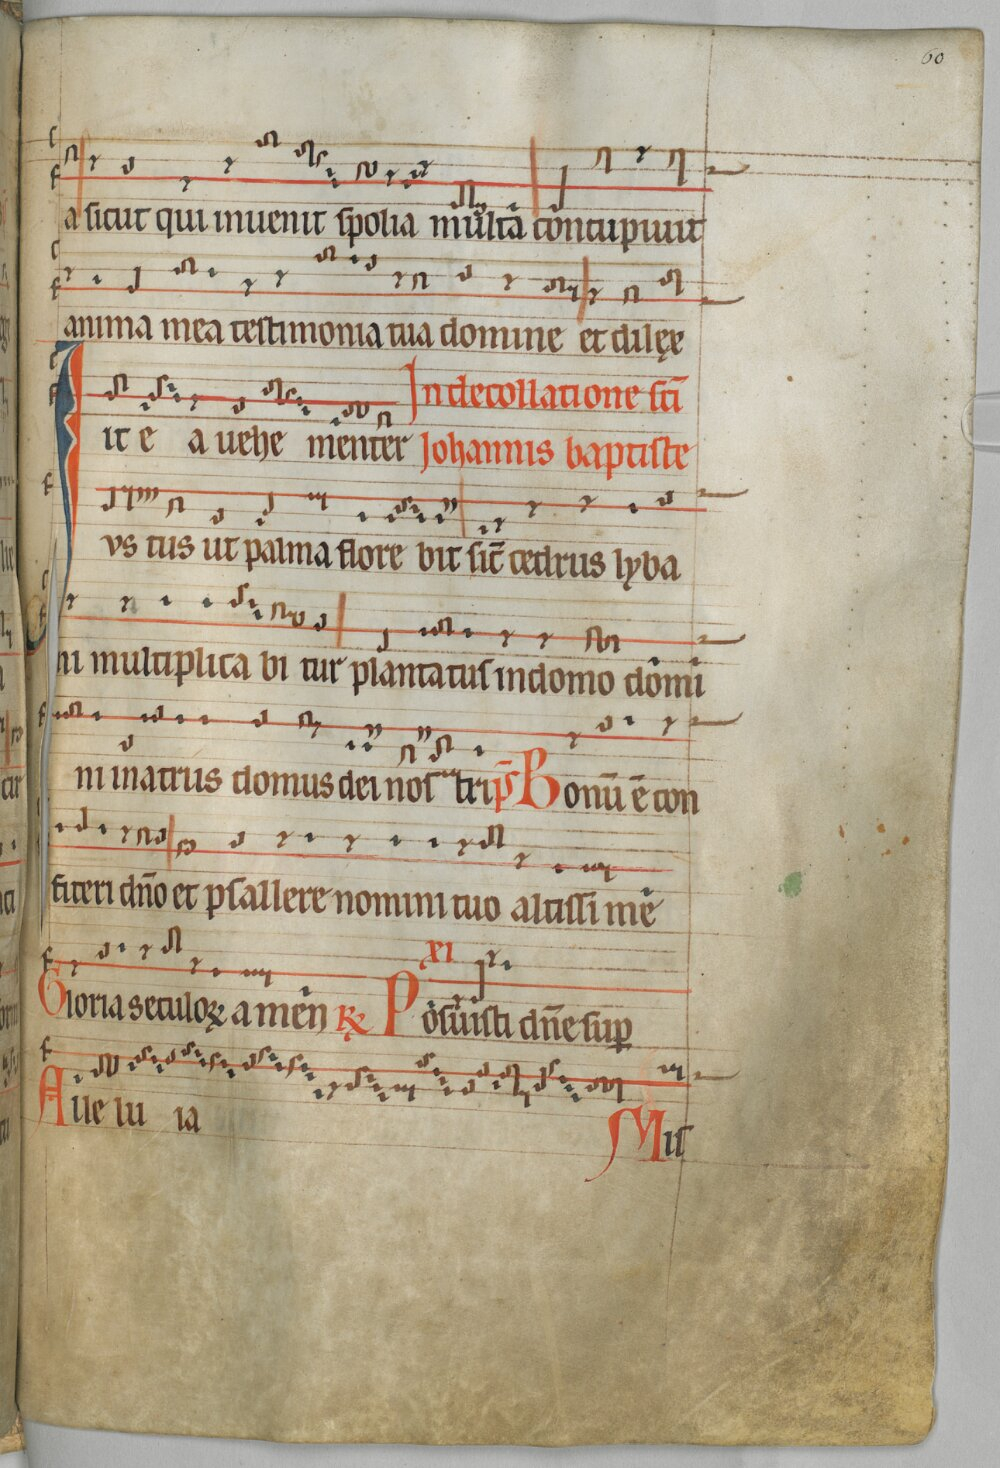 60
a sicut qui inuenit spolia multā concupiuit
anima mea testimonia tua domine et dilęxe
it e a uehe menter In decollatione sc̄i
Johannis baptiste
vs tus ut palma flore bit sic̄ cedrus lyba
ni multiplica bi tur plantatus in domo domi
ni in atrius domus dei nos tri ps̄ Bonū ē con
fiteri dn̄o et psallere nomini tuo altissi me
Gloria seculoꝝ amen ℟ Posuisti dn̄e suꝑ
XI
Alle lu ia Mis